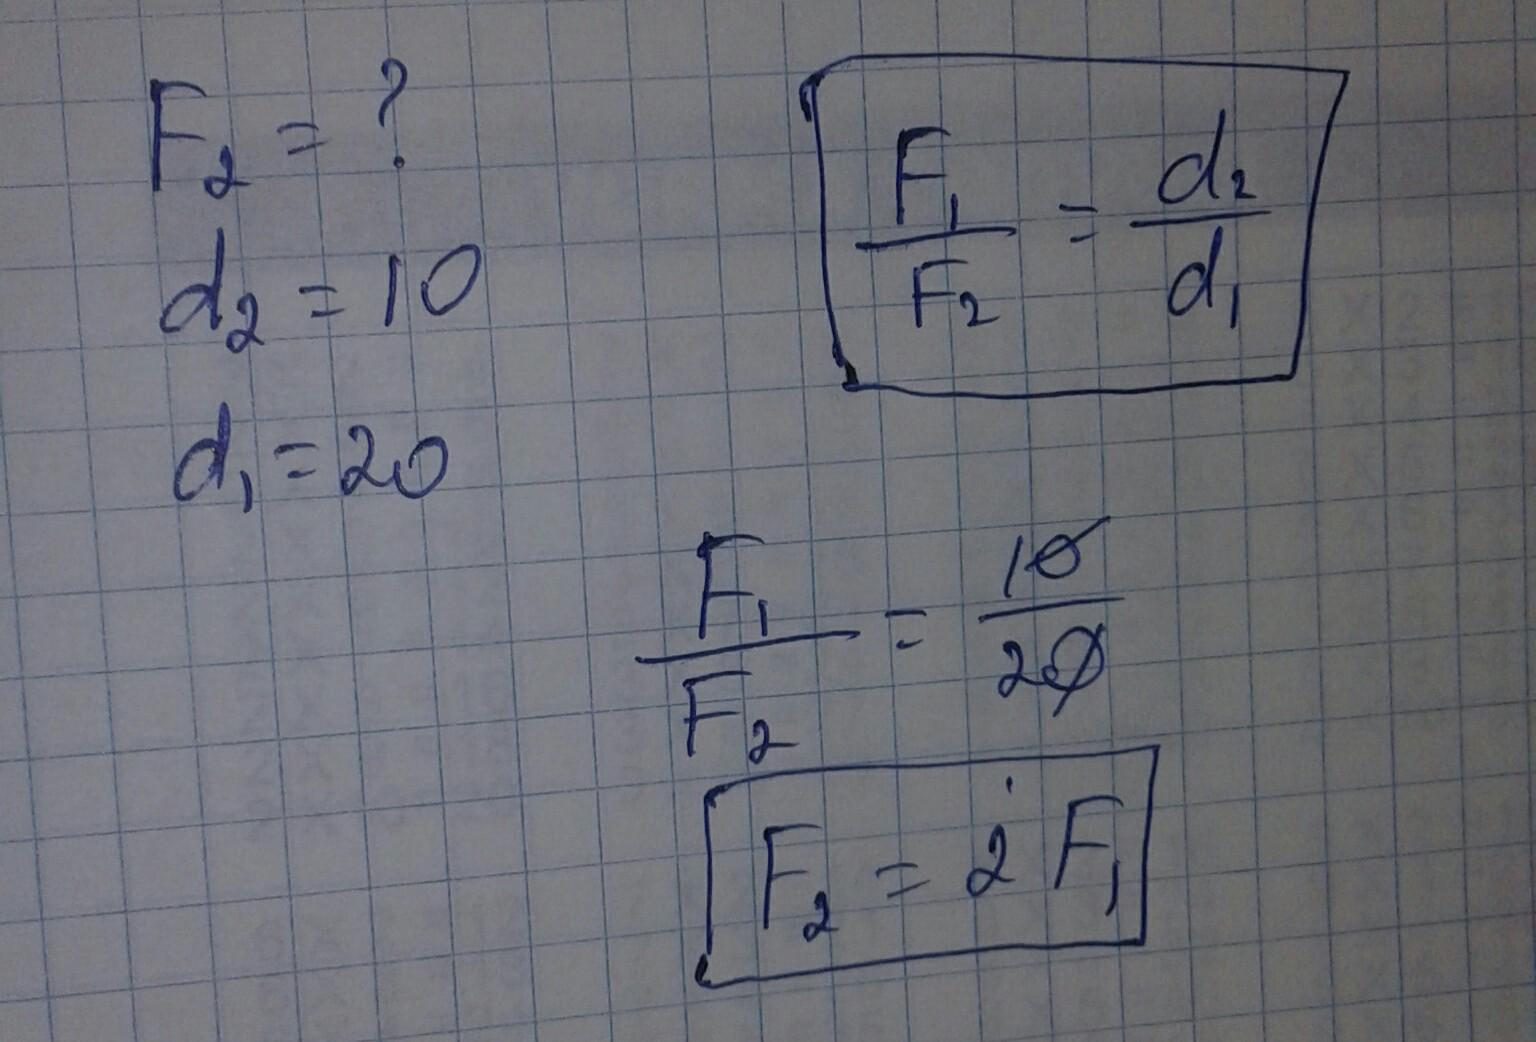 F₂ = ?
d₂ = 10
d₁ = 20
F₁/F₂ = d₂/d₁
F₁/F₂ = 10/20
F₂ = 2 F₁